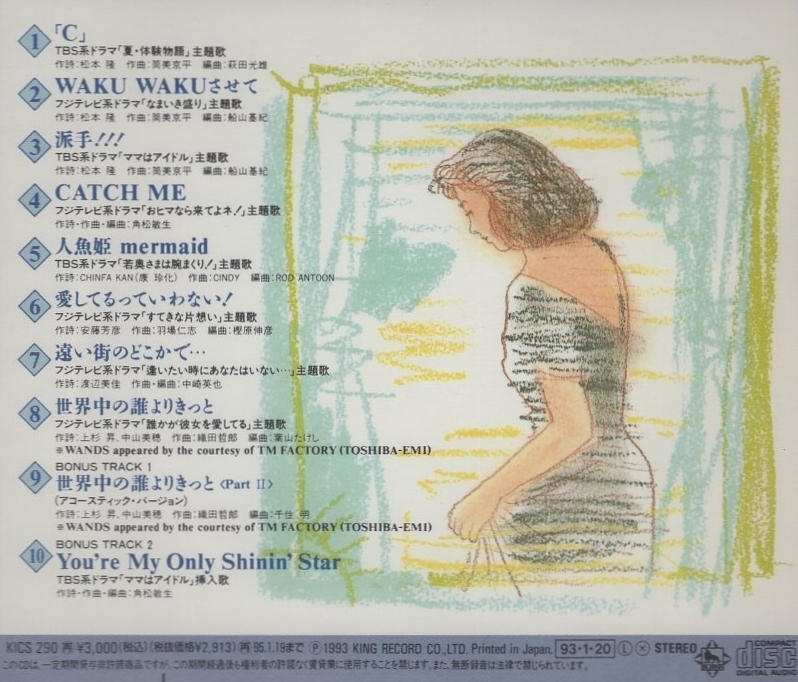 1 「C」
TBS系ドラマ「夏・体験物語」主題歌
作詩:松本 隆 作曲:筒美京平 編曲:萩田光雄
2 WAKU WAKUさせて
フジテレビ系ドラマ「なまいき盛り」主題歌
作詩:松本 隆 作曲:筒美京平 編曲:船山基紀
3 派手!!!
TBS系ドラマ「ママはアイドル」主題歌
作詩:松本 隆 作曲:筒美京平 編曲:船山基紀
4 CATCH ME
フジテレビ系ドラマ「おヒマなら来てよネ!」主題歌
作詩・作曲・編曲:角松敏生
5 人魚姫 mermaid
TBS系ドラマ「若奥さまは腕まくり!」主題歌
作詩:CHINFA KAN(康 珍化) 作曲:CINDY 編曲:ROD ANTOON
6 愛してるっていわない!
フジテレビ系ドラマ「すてきな片想い」主題歌
作詩:安藤芳彦 作曲:羽場仁志 編曲:樫原伸彦
7 遠い街のどこかで…
フジテレビ系ドラマ「逢いたい時にあなたはいない…」主題歌
作詩:渡辺美佳 作曲・編曲:中崎英也
8 世界中の誰よりきっと
フジテレビ系ドラマ「誰かが彼女を愛してる」主題歌
作詩:上杉 昇、中山美穂 作曲:織田哲郎 編曲:葉山たけし
※WANDS appeared by the courtesy of TM FACTORY (TOSHIBA-EMI)
BONUS TRACK 1
9 世界中の誰よりきっと〈Part II〉
(アコースティック・バージョン)
作詩:上杉 昇、中山美穂 作曲:織田哲郎 編曲:千住 明
※WANDS appeared by the courtesy of TM FACTORY (TOSHIBA-EMI)
BONUS TRACK 2
10 You're My Only Shinin' Star
TBS系ドラマ「ママはアイドル」挿入歌
作詩・作曲・編曲:角松敏生
KICS 290 再 ¥3,000(税込)(税抜価格¥2,913) 再 95.1.19まで Ⓟ1993 KING RECORD CO.,LTD. Printed in Japan. 93・1・20 Ⓛ Ⓧ STEREO COMPACT disc DIGITAL AUDIO
このCDは、一定期間貸与非許諾商品ですが、この期間経過後も権利者の許諾なく賃貸業に使用することを禁じます。また、無断録音は法律で禁じられています。